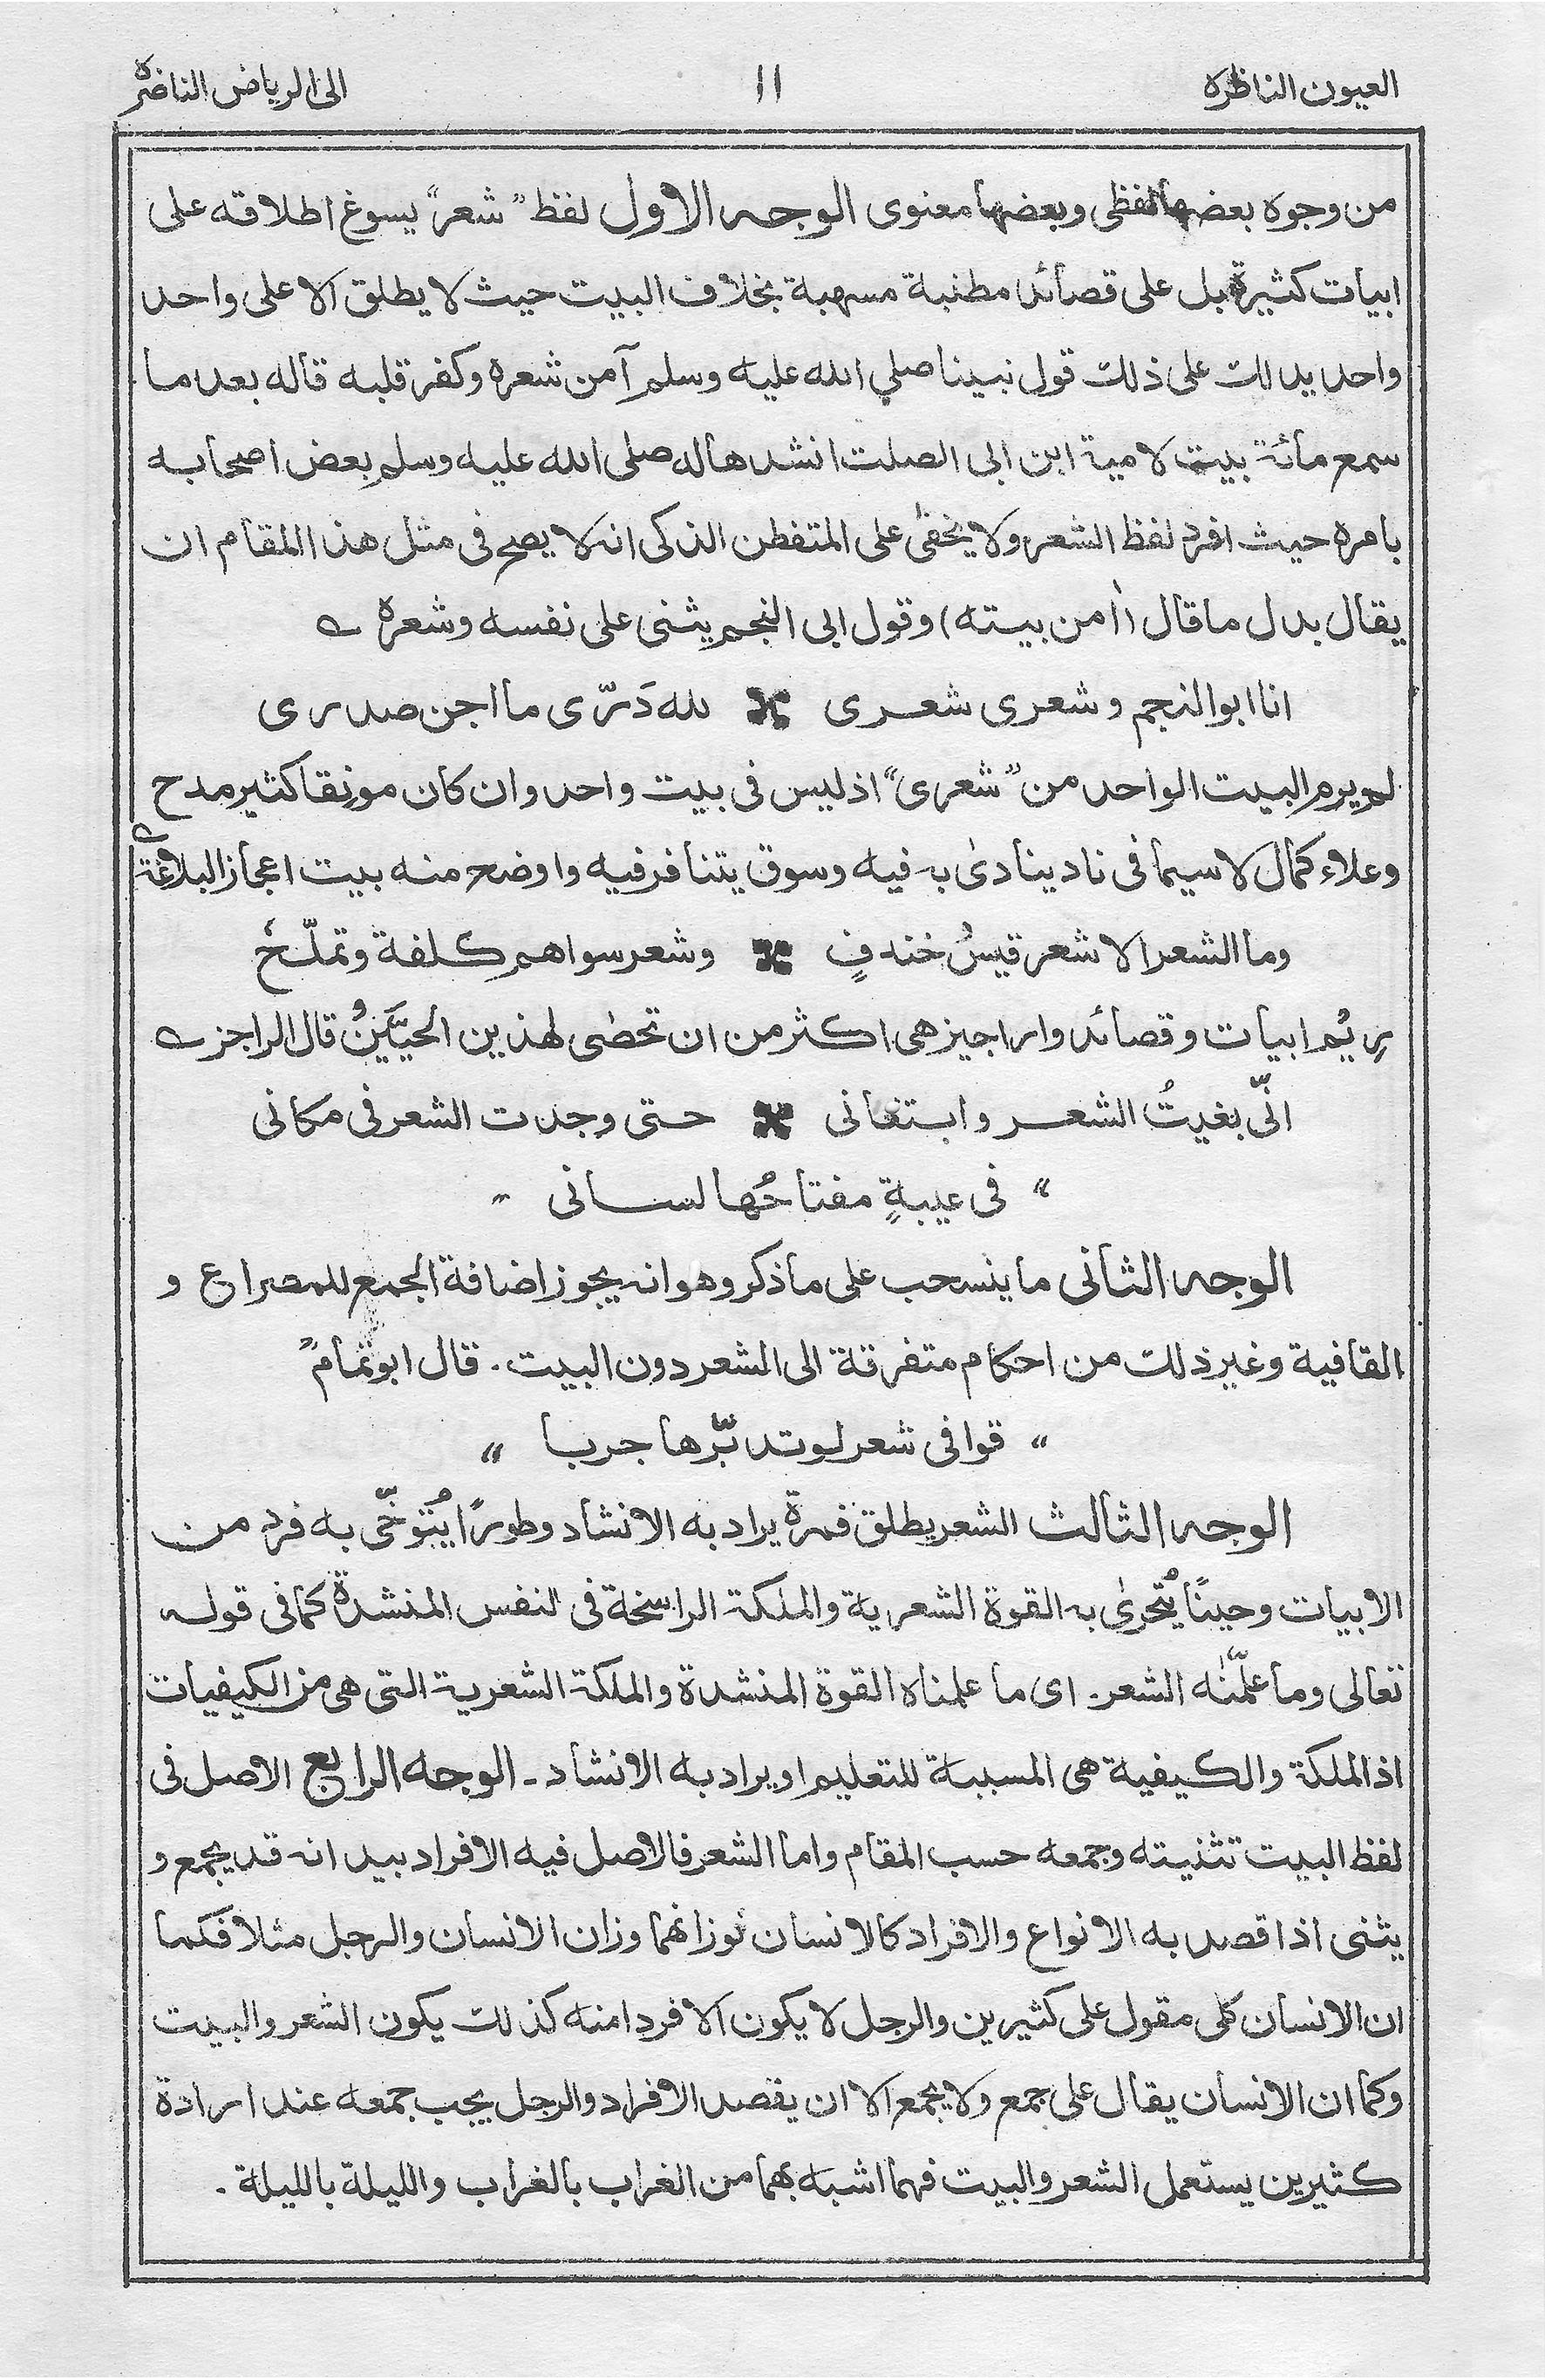 العيون الناظرة
١١
الى الرياض الناضرة
من وجوه بعضها لفظى وبعضها معنوى الوجه الاول لفظ "شعر" يسوغ اطلاقه على
ابيات كثيرة بل على قصائد مطنبة مسهبة بخلاف البيت حيث لا يطلق الا على واحد
واحد يدلك على ذلك قول نبينا صلي الله عليه وسلم آمن شعره وكفر قلبه قاله بعد ما
سمع مائة بيت لامية ابن ابى الصلت انشدها له صلى الله عليه وسلم بعض اصحابه
بامره حيث افرد لفظ الشعر ولا يخفى على المتفطن الذكى انه لا يصح فى مثل هذا المقام ان
يقال بدل ما قال (اٰمن بيته) وقول ابى النجم يثنى على نفسه وشعره ؎
انا ابو النجم وشعرى شعرى ٭ لله دَرّى ما اجن صدرى
لم يرم البيت الواحد من "شعرى" اذ ليس فى بيت واحد وان كان مونقا كثير مدح
وعلاء كمال لا سيما فى ناد ينادىٰ به فيه وسوق يتنافر فيه واوضح منه بيت اعجاز البلاغة ؎
وما الشعر الا شعر قيسُ خندفٍ ٭ وشعر سواهم كلفة وتملّحٗ
يريْم ابيات وقصائد واراجيز هى اكثر من ان تحصٰى لهذين الحيَّيْنُ وقال الراجز ؎
انّى بغيتُ الشعر وابتغانى ٭ حتى وجدت الشعر فى مكانى
" فى عيبةٍ مفتاحُها لسانى "
الوجه الثانى ما ينسحب على ما ذكر وهو انه يجوز اضافة الجمع للمصراع و
القافية وغير ذلك من احكام متفرقة الى الشعر دون البيت. قال ابو تمامؒ
" قوافى شعر لو تدبّرها جربا "
الوجه الثالث الشعر يطلق فمرة يراد به الانشاد وطورًا يُتوخّٰى به فرد من
الابيات وحينًا يُتحرىٰ به القوة الشعرية والملكة الراسخة فى النفس المنشدة كما فى قوله
تعالى وما علّمنٰه الشعر۔ اى ما علمناه القوة المنشدة والملكة الشعرية التى هى من الكيفيات
اذ الملكة والكيفية هى المسببة للتعليم او يراد به الانشاد۔ الوجه الرابع الاصل فى
لفظ البيت تثنيته وجمعه حسب المقام واما الشعر فالاصل فيه الافراد بيد انه قد يجمع و
يثنى اذا قصد به الانواع والافراد كالانسان فوزانهما وزان الانسان والرجل مثلا فكما
ان الانسان كلى مقول على كثيرين والرجل لا يكون الا فردا منه كذلك يكون الشعر والبيت
وكما ان الانسان يقال على جمع ولا يجمع الا ان يقصد الافراد والرجل يجب جمعه عند ارادة
كثيرين يستعمل الشعر والبيت فهما اشبه بهما من الغراب بالغراب والليلة بالليلة.